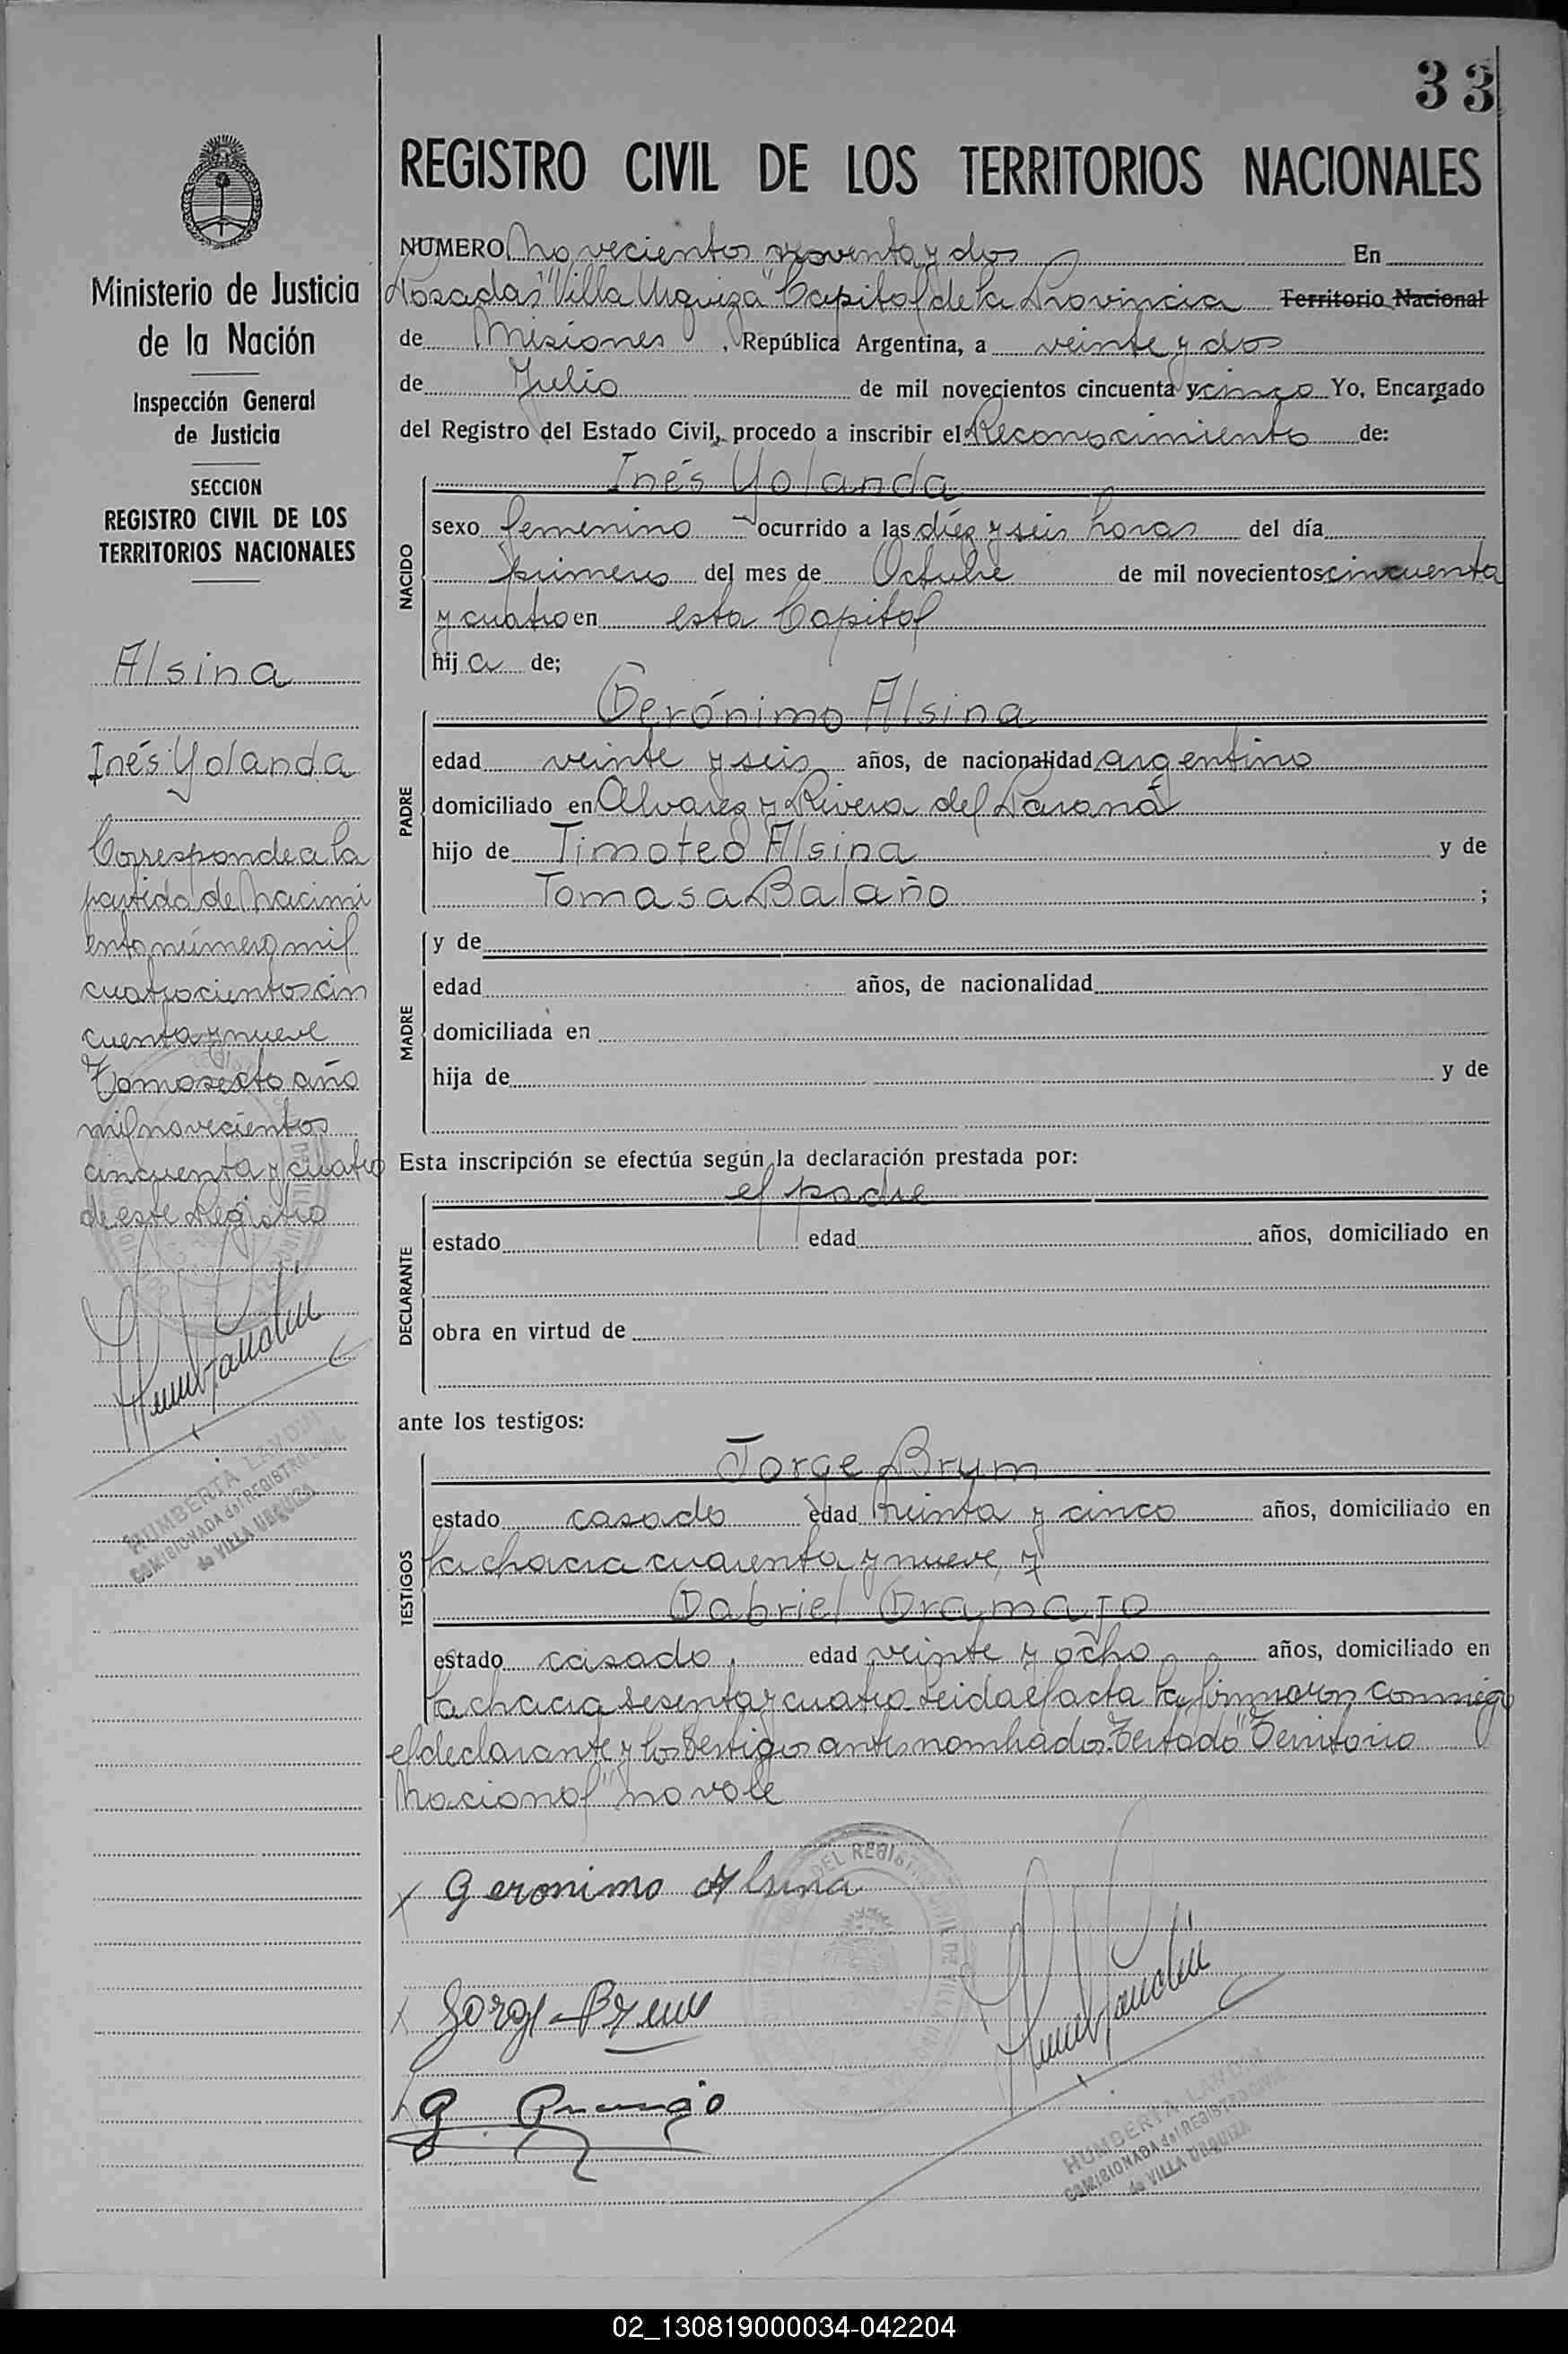 33
REGISTRO CIVIL DE LOS TERRITORIOS NACIONALES
NUMERO Novecientos noventa y dos En
Posadas "Villa Urquiza" Capital de la Provincia Territorio Nacional
de Misiones, República Argentina, a veinte y dos
de Julio de mil novecientos cincuenta y cinco Yo, Encargado
del Registro del Estado Civil, procedo a inscribir el Reconocimiento de:
NACIDO
Inés Yolanda
sexo femenino ocurrido a las diez y seis horas del día
primero del mes de Octubre de mil novecientos cincuenta
y cuatro en esta Capital
hij a de;
PADRE
Gerónimo Alsina
edad veinte y seis años, de nacionalidad argentino
domiciliado en Alvarez y Rivera del Paraná
hijo de Timoteo Alsina y de
Tomasa Balaño ;
MADRE
y de
edad años, de nacionalidad
domiciliada en
hija de y de
Esta inscripción se efectúa según la declaración prestada por:
DECLARANTE
el padre
estado edad años, domiciliado en
obra en virtud de
ante los testigos:
TESTIGOS
Jorge Brym
estado casado edad treinta y cinco años, domiciliado en
la chacra cuarenta y nueve y
Gabriel Gramajo
estado casado, edad veinte y ocho años, domiciliado en
la chacra sesenta y cuatro. Leida el acta la firmaron conmigo
el declarante y los testigos antes nombrados. Testado "Territorio
Nacional" no vale
x Geronimo Alsina
x Jorge Brym
G. Gramajo
DEL REGIS
HUMBERTA LANDINI
COMISIONADA del REGISTRO CIVIL
de VILLA URQUIZA
Ministerio de Justicia
de la Nación
Inspección General
de Justicia
SECCION
REGISTRO CIVIL DE LOS
TERRITORIOS NACIONALES
Alsina
Inés Yolanda
Corresponde a la
partida de Nacimi
ento número mil
cuatrocientos cin
cuenta y nueve
Tomo sexto año
mil novecientos
cincuenta y cuatro
de este Registro
HUMBERTA LANDINI
COMISIONADA del REGISTRO CIVIL
de VILLA URQUIZA
02_130819000034-042204